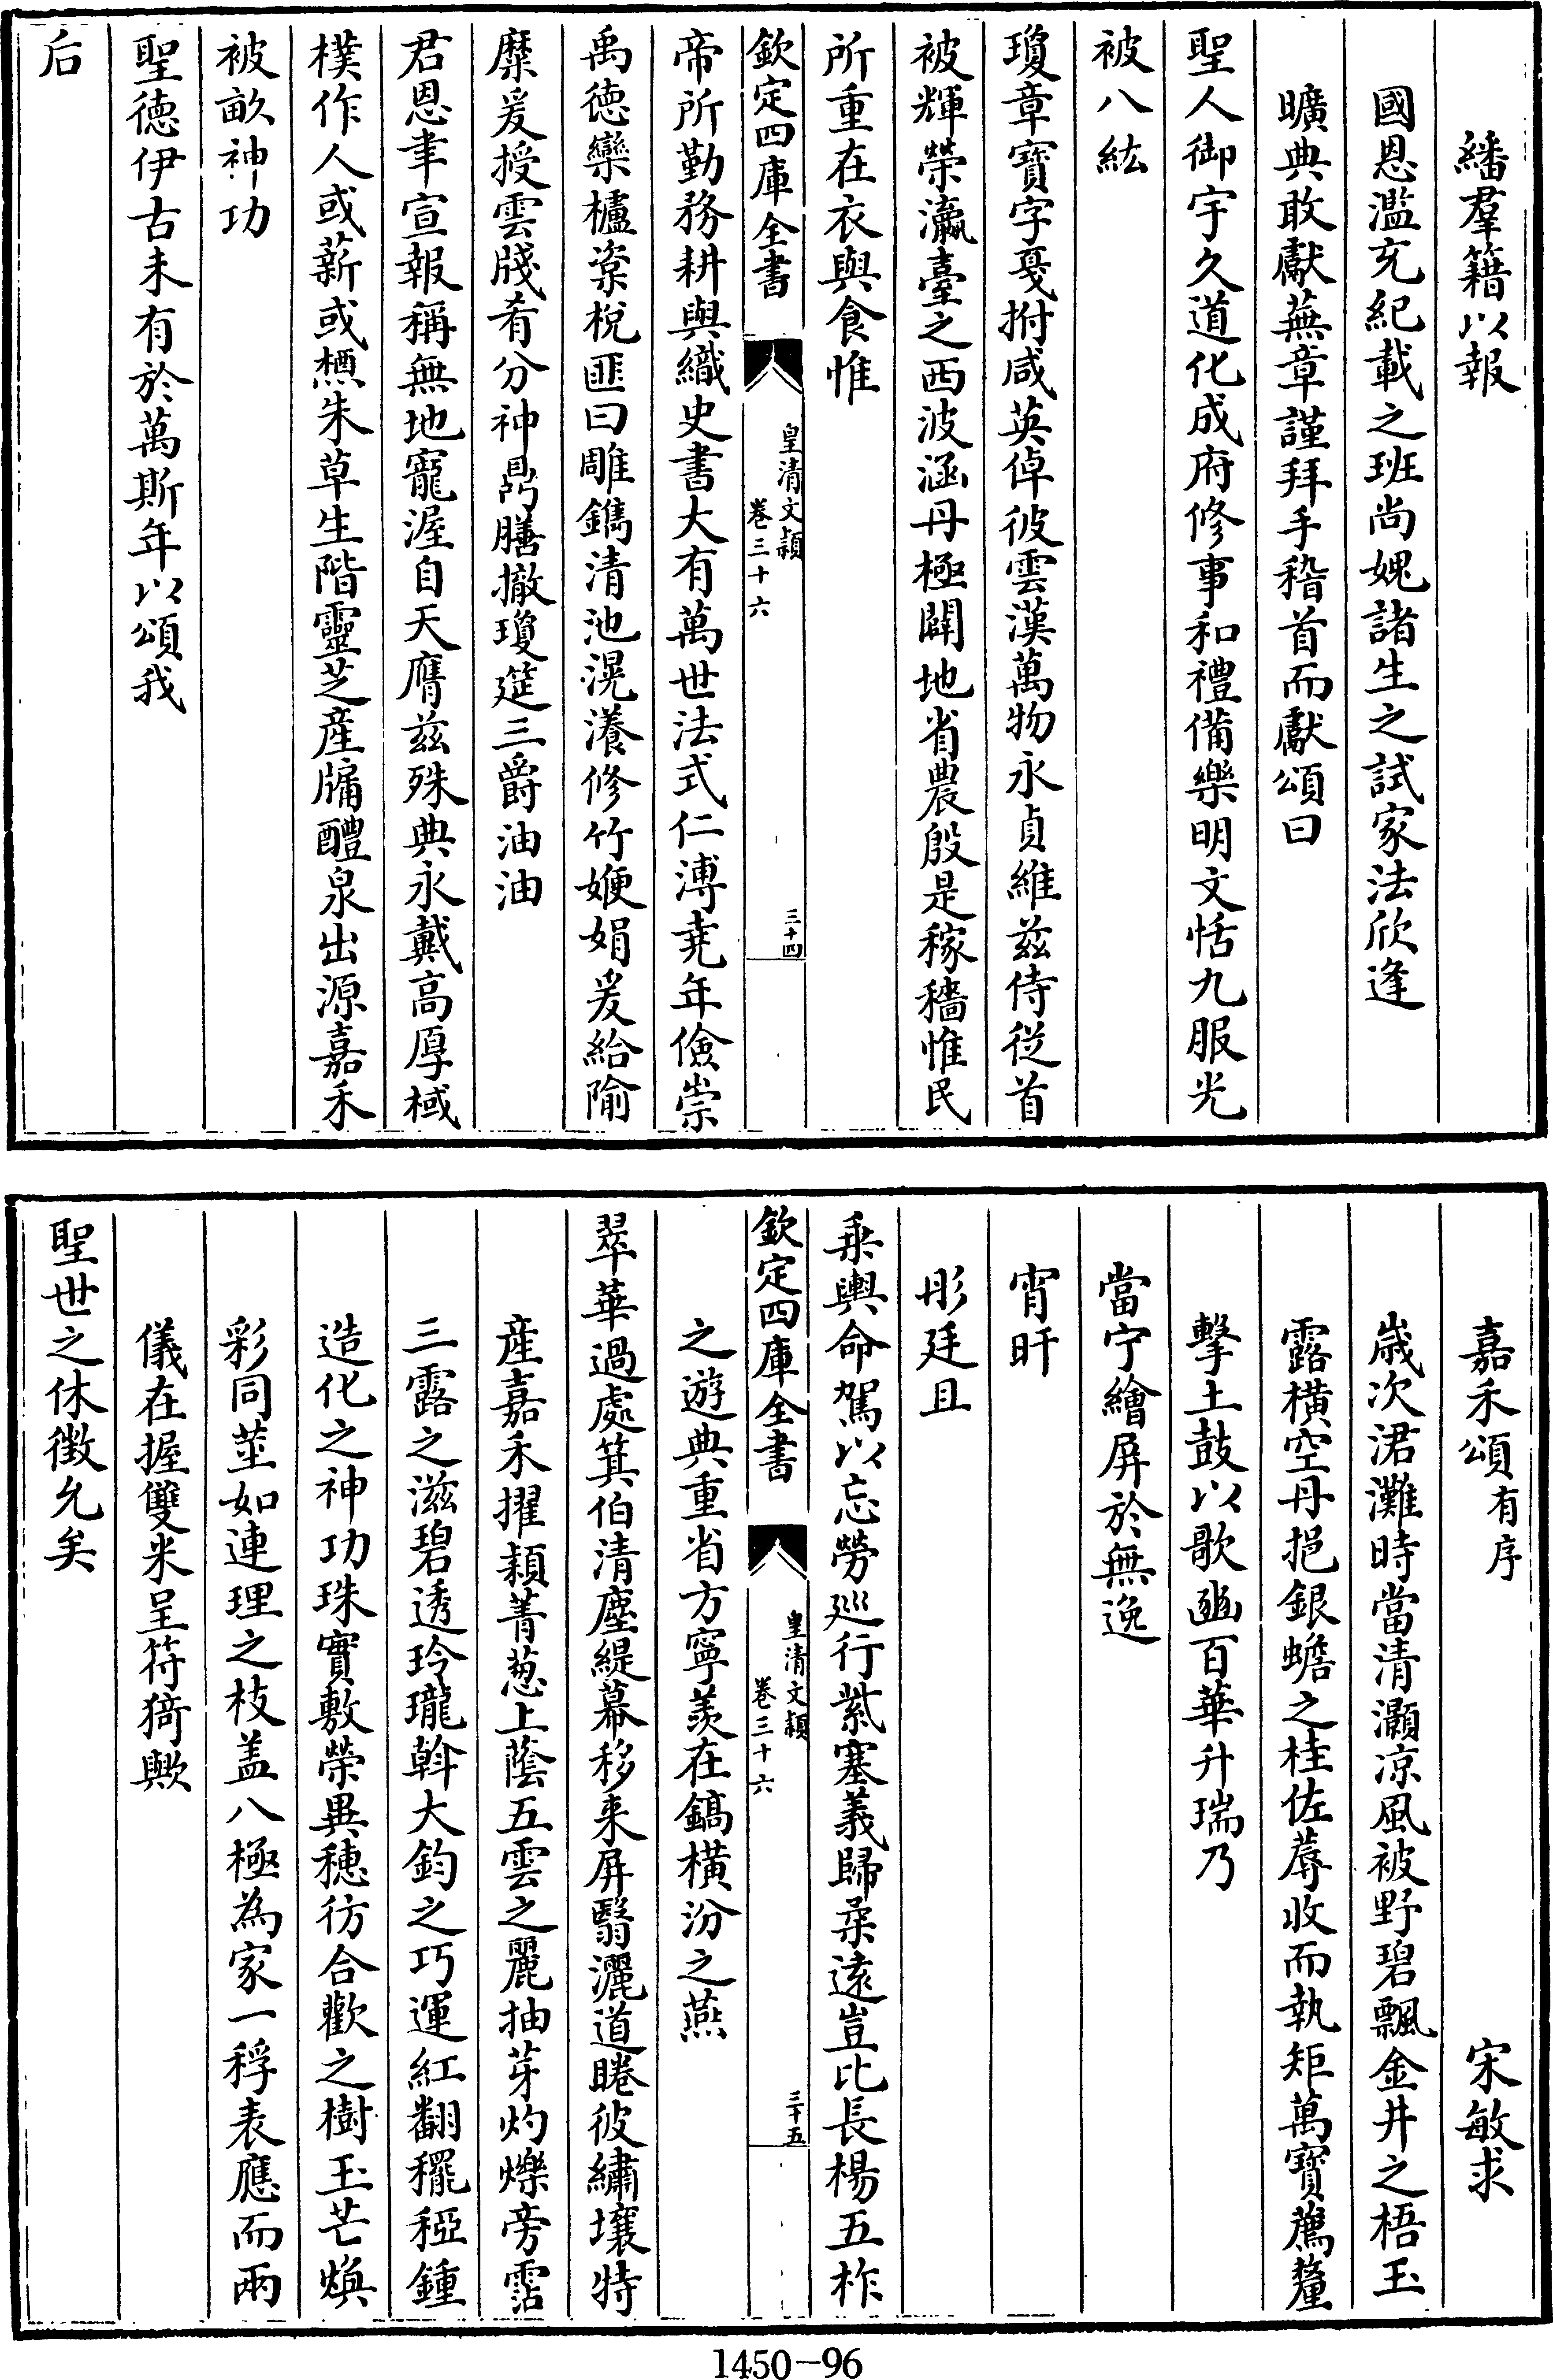 繙羣籍以報
國恩濫充紀載之班尚媿諸生之試家法欣逢
曠典敢獻蕪章謹拜手稽首而獻頌曰
聖人御宇久道化成府修事和禮備樂明文恬九服光
被八紘
瓊章寶字戞拊咸英倬彼雲漢萬物永貞維兹侍從首
被輝榮瀛臺之西波涵丹極闢地省農殷是稼穡惟民
所重在衣與食惟
欽定四庫全書
皇清文穎
卷三十六
三十四
帝所勤務耕與織史書大有萬世法式仁溥堯年儉崇
禹徳欒櫨楶梲匪曰雕鐫清池滉瀁修竹㛹娟爰給隃
糜爰授雲牋肴分神鼎膳撤瓊筵三爵油油
君恩聿宣報稱無地寵渥自天膺兹殊典永戴高厚棫
樸作人或薪或槱朱草生階靈芝産牖醴泉出源嘉禾
被畝神功
聖德伊古未有於萬斯年以頌我
后
嘉禾頌有序 宋敏求
歲次涒灘時當清灝凉風被野碧飄金井之梧玉
露橫空丹挹銀蟾之桂佐蓐收而執矩萬寶薦釐
擊土鼓以歌豳百華升瑞乃
當宁繪屏於無逸
宵旰
彤廷且
乗輿命駕以忘勞巡行紫塞義歸柔遠豈比長楊五柞
欽定四庫全書
皇清文穎
卷三十六
三十五
之遊典重省方寧羨在鎬橫汾之燕
翠華過處箕伯清塵緹幕移来屏翳灑道睠彼繡壤特
産嘉禾擢穎菁葱上蔭五雲之麗抽芽灼爍旁霑
三露之滋碧透玲瓏斡大鈞之巧運紅翻䆉稏鍾
造化之神功珠實敷榮異穗彷合歡之樹玉芒煥
彩同莖如連理之枝盖八極為家一稃表應而兩
儀在握雙米呈符猗歟
聖世之休徴允矣
1450-96